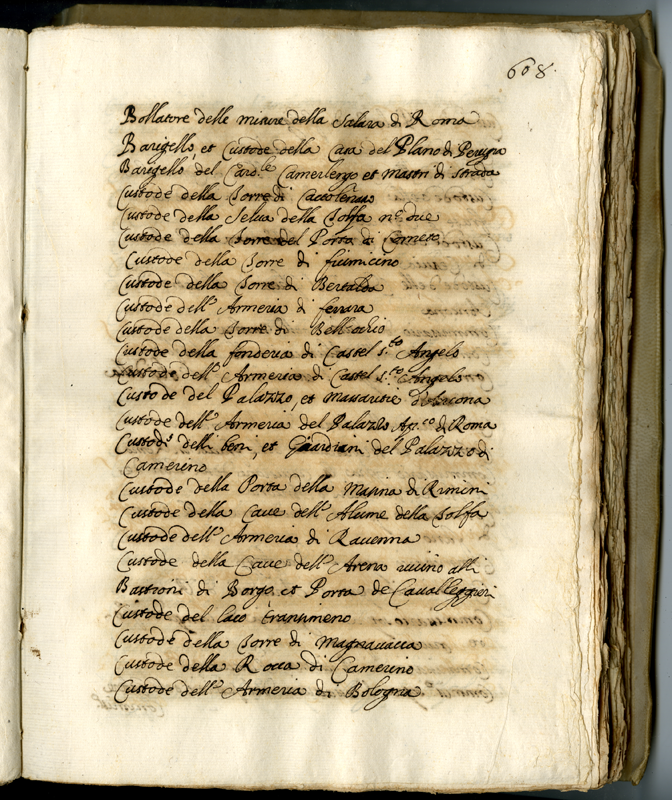 608.
Bollatore delle misure della Salara di Roma
Barigello, et Custode della Casa del Piano di Perugia
Barigello del Card.le Camerlengo et mastri di strada
Custode della Torre di
Custode della Selva della Tolfa n.o due
Custode della Torre del Porto di Corneto
Custode della Torre di fiumicino
Custode della Torre di Bertalda
Custode dell'Armeria di ferrara
Custode della Torre di Bell'aria
Custode della fonderia di Castel s.to Angelo
Custode dell'Armeria di Castel s.to Angelo
Custode del Palazzo, et massaritie d'Ancona
Custode dell'Armeria del Palazzo Ap.co di Roma
Custodi delli beni, et Guardiani del Palazzo di
Camerino
Custode della Porta della Marina di Rimini
Custode della Cave dell'Alume della Tolfa
Custode dell'Armeria di Ravenna
Custode della Cave dell'Arena vicino alli
Bastioni di Borgo, et Porta de Cavalleggieri
Custode del Laco transimeno
Custode della Torre di Magnavacca
Custode della Rocca di Camerino
Custode dell'Armeria di Bologna